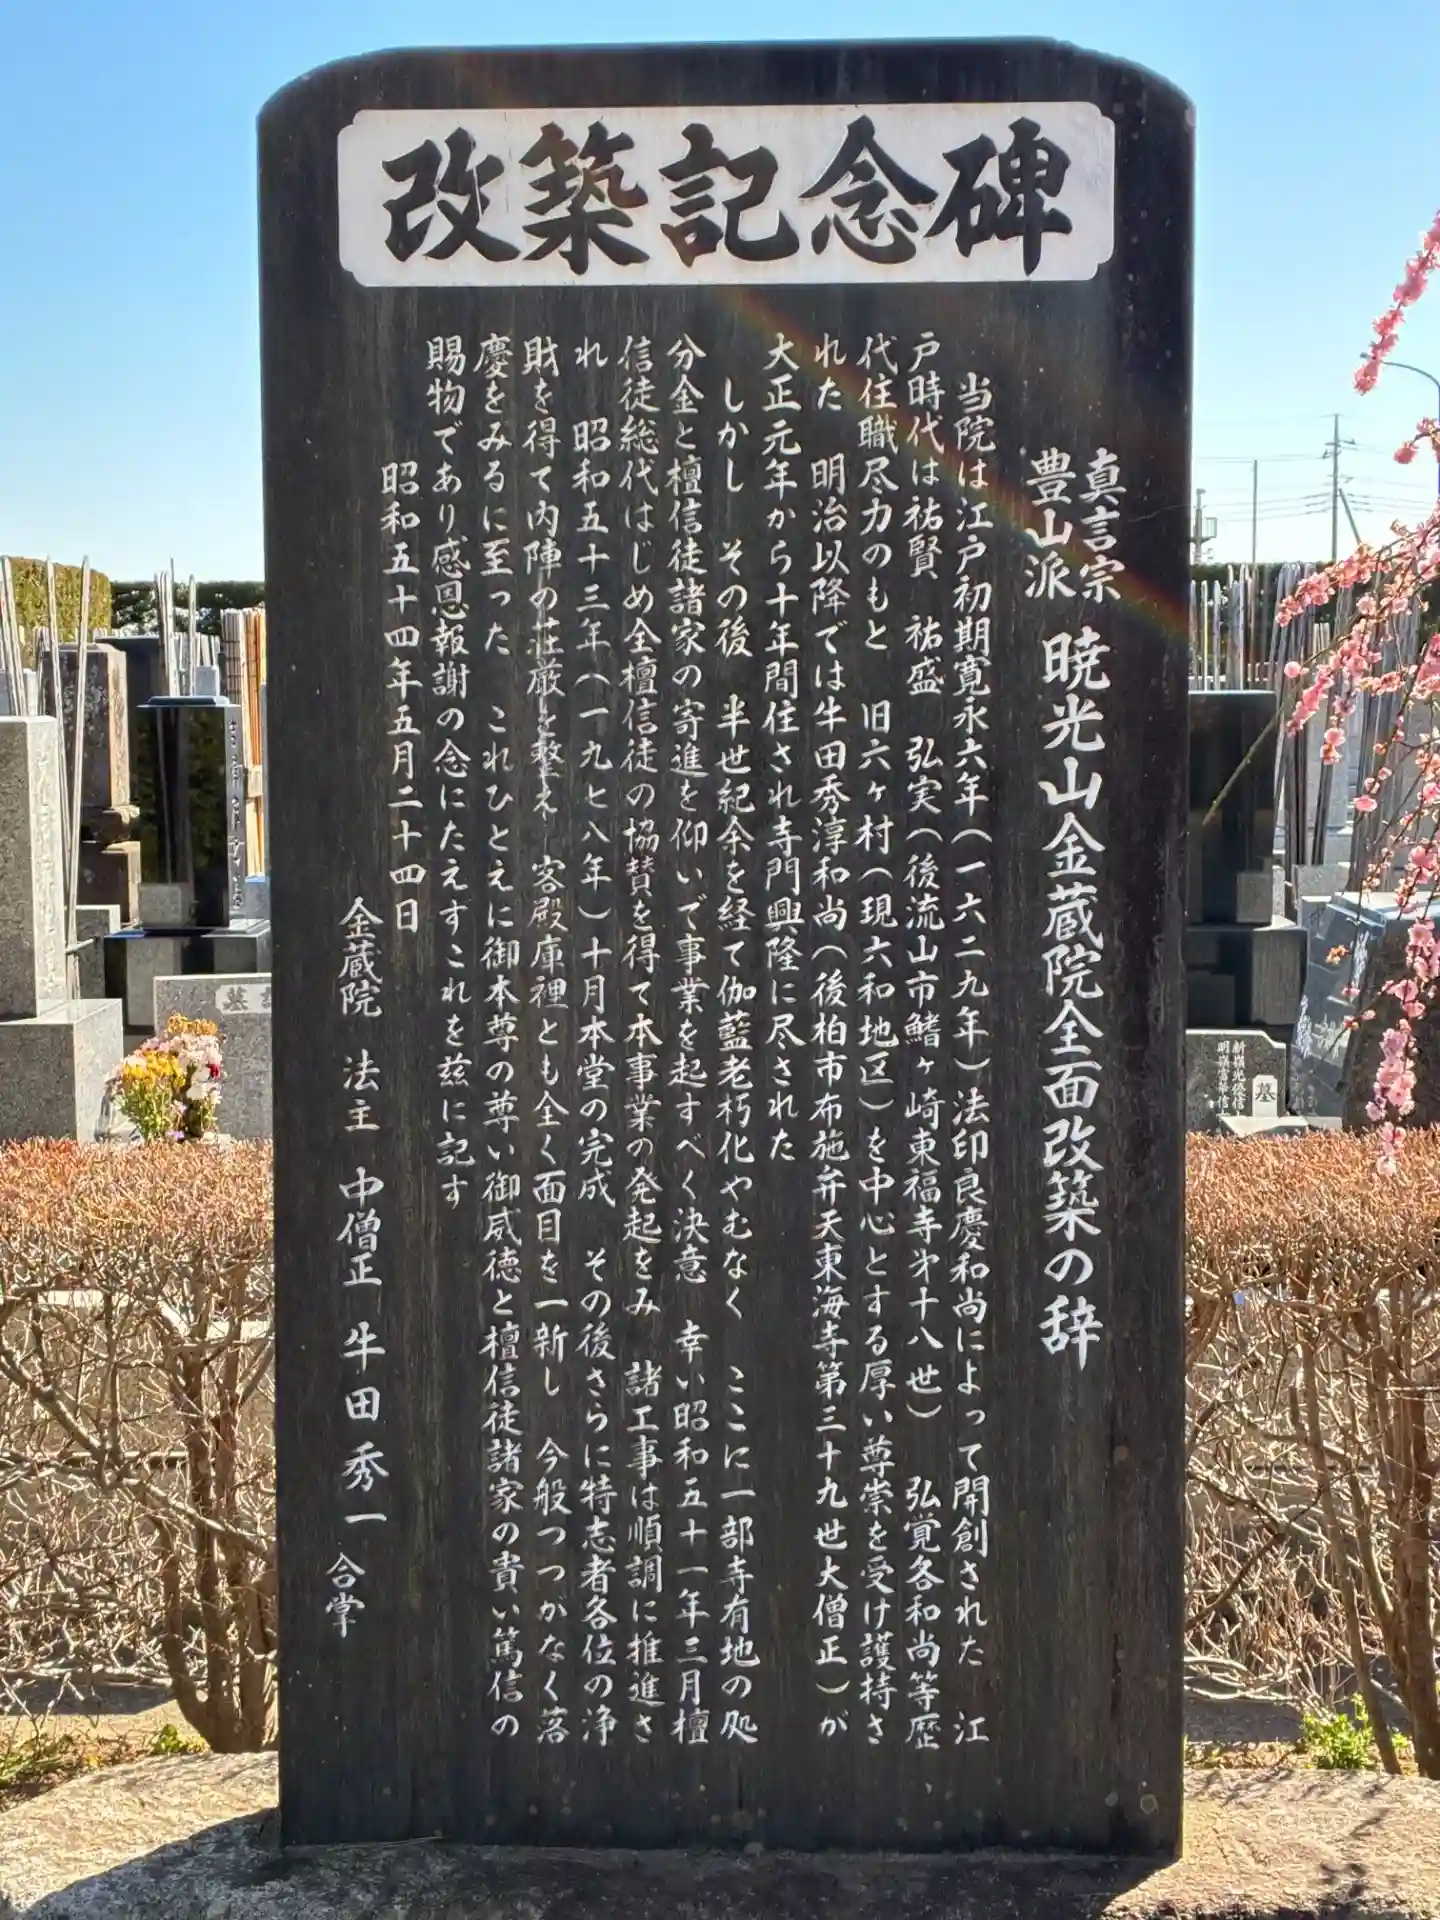 改築記念碑
真言宗
豊山派
暁光山金蔵院全面改築の辞
当院は江戸初期寛永六年(一六二九年)法印良慶和尚によって開創された 江
戸時代は祐賢 祐盛 弘実(後流山市鰭ヶ崎東福寺㐧十八世) 弘覚各和尚等歴
代住職尽力のもと 旧六ヶ村(現六和地区)を中心とする厚い尊崇を受け護持さ
れた 明治以降では牛田秀淳和尚(後柏市布施弁天東海寺第三十九世大僧正)が
大正元年から十年間住され寺門興隆に尽された
しかし その後 半世紀余を経て伽藍老朽化やむなく ここに一部寺有地の処
分金と檀信徒諸家の寄進を仰いで事業を起すべく決意 幸い昭和五十一年三月檀
信徒総代はじめ全檀信徒の協賛を得て本事業の発起をみ 諸工事は順調に推進さ
れ 昭和五十三年(一九七八年)十月本堂の完成 その後さらに特志者各位の浄
財を得て内陣の荘厳を整え 客殿庫裡とも全く面目を一新し 今般つつがなく落
慶をみるに至った これひとえに御本尊の尊い御威徳と檀信徒諸家の貴い篤信の
賜物であり感恩報謝の念にたえずこれを玆に記す
昭和五十四年五月二十四日
金蔵院 法主 中僧正 牛田秀一 合掌
墓